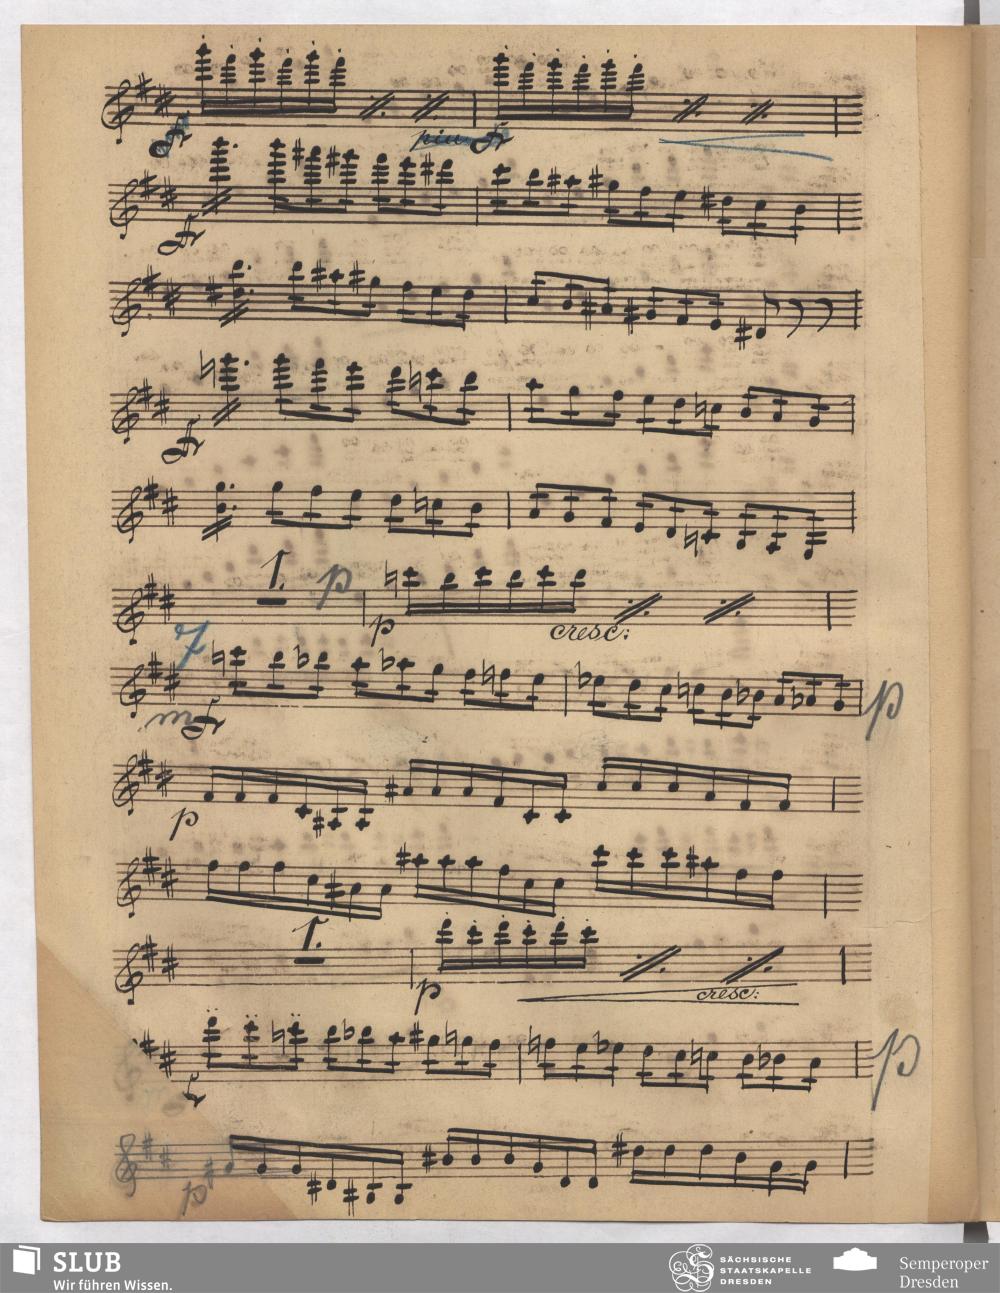 f
più f
f
f
1. p
p cresc:
7
mf p
p
1.
p cresc:
f p
p
SLUB
Wir führen Wissen.
SÄCHSISCHE
STAATSKAPELLE
DRESDEN
Semperoper
Dresden